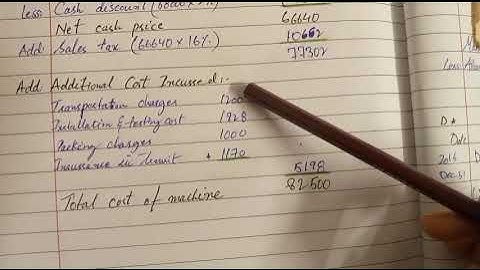 Less: Cash discount (68000 x 2%)
Net cash price 66640
Add: Sales tax (66640 x 16%) 10662
77302
Add: Additional Cost Incurred:-
Transportation charges 1200
Installation & testing cost 1828
Packing charges 1000
Insurance in transit + 1170
5198
Total cost of machine 82500
Less:
Date
2016
Dec.31